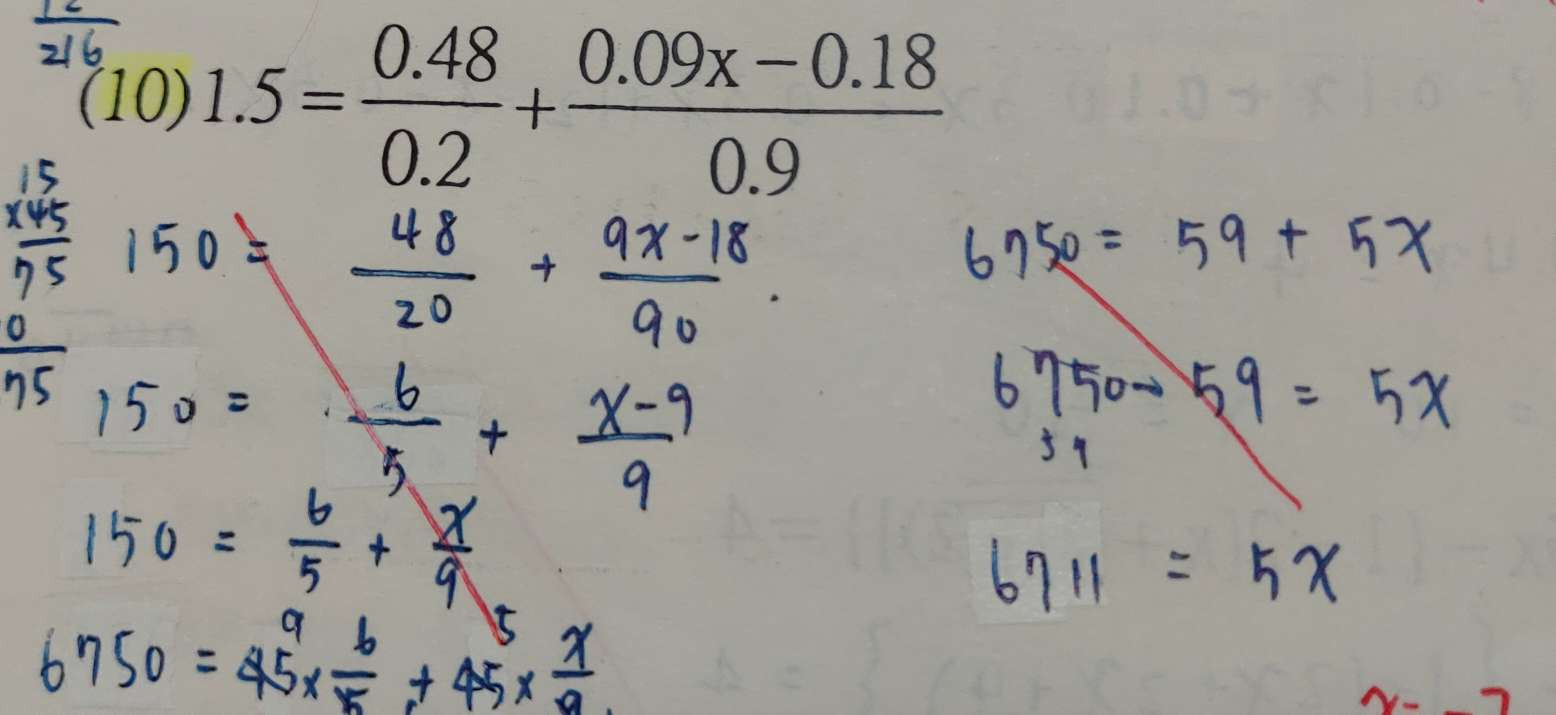 12/216
(10) 1.5 = 0.48/0.2 + (0.09x − 0.18)/0.9
15
×45
75
0
75
150 = 48/20 + (9x - 18)/90
150 = 6/5 + (x - 9)/9
150 = 6/5 + x/9
9 5
6750 = 45 × 6/5 + 45 × x/9
6750 = 59 + 5x
6750 - 59 = 5x
59
6711 = 5x